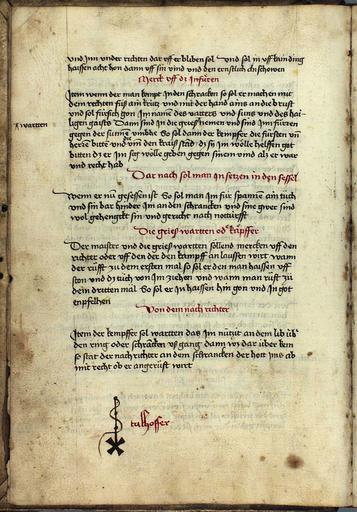 vnd Im vnder richten dar vff er bliben sol vnd sol in vff künding
haissen acht hon dann vff sin vind vnd den ernstlich an schowen
Merck vff dz Infüren
Item wenn der man kompt in den schrancken so sol er machen mit
dem rechten füß ain krütz vnd mit der hand ains an die brust
vnd sol fürsich gon Im namen des vatters vnd suns vnd des hai
ligen gaists Dann sind In die griesß nemen vnd sind Im füren
gegen der sunne vmbhe So sol dann der kempfer die fürsten vnd
herre bitte vnd die vmb den kraiß stand dz sy Im wölle helffen got
bitten dz er Im sig wölle geben gegen sinem vind als er war
vnd recht hab
wartten
Dar nach sol man In setzen in den sessel
Wenn er nü gesessen ist So sol man Im für spannen ain tuch
vnd sin bar hinder Im an den schrancken vnd sine gwer sind
wol gehengckt sin vnd gericht nach notturfft
Die grieß wartten od kempffer
Der maister vnd die grieß wartten sollend mercken vff den
richter oder vff den der den kampff an laussen wirt wann
der rüfft zu dem ersten mal so sol er den man haissen vff
ston vnd dz tuch von Im ziehen vnd wann man rüfft zu
dem dritten mal So sol er In haissen hin gon vnd In got
enpfelhen
Von dem nach richter
Item der kempffer sol wartten das Im nützit an dem lib üb
den ring oder schrancken vß gang dann wz dar über kem
so stat der nachrichter an dem schrancken der hett Ims ab
mit recht ob er angerüfft wirt
talhoffer